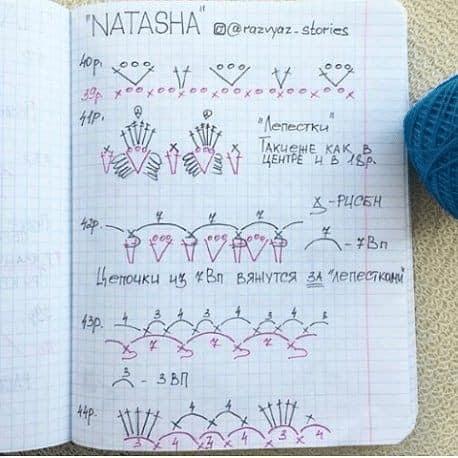 "NATASHA" @razvyaz_stories
40р.
39р.
41р.
"Лепестки"
Такие же, как в
центре и в 18р.
42р. 7 7 7
х - РЛСБН
7 - 7Вп
Цепочки из 7Вп вяжутся за "лепестками"
43р. 4 3 4 3 4 3 4 3
7 7 7
3 - 3 ВП
44р. 4 4
3 4 4 4 3 4